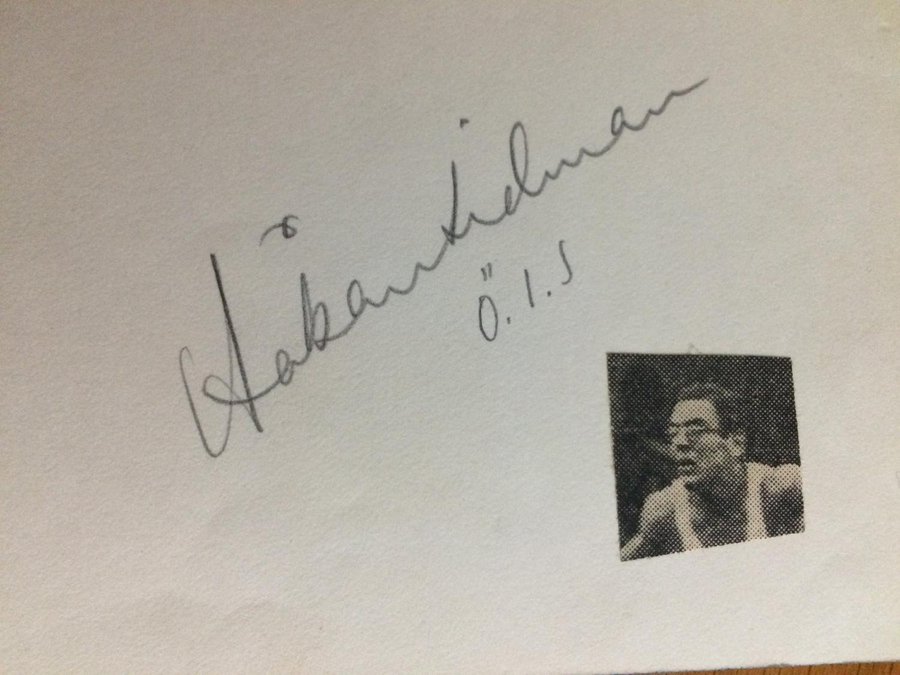 Håkan Lidman
Ö.I.S